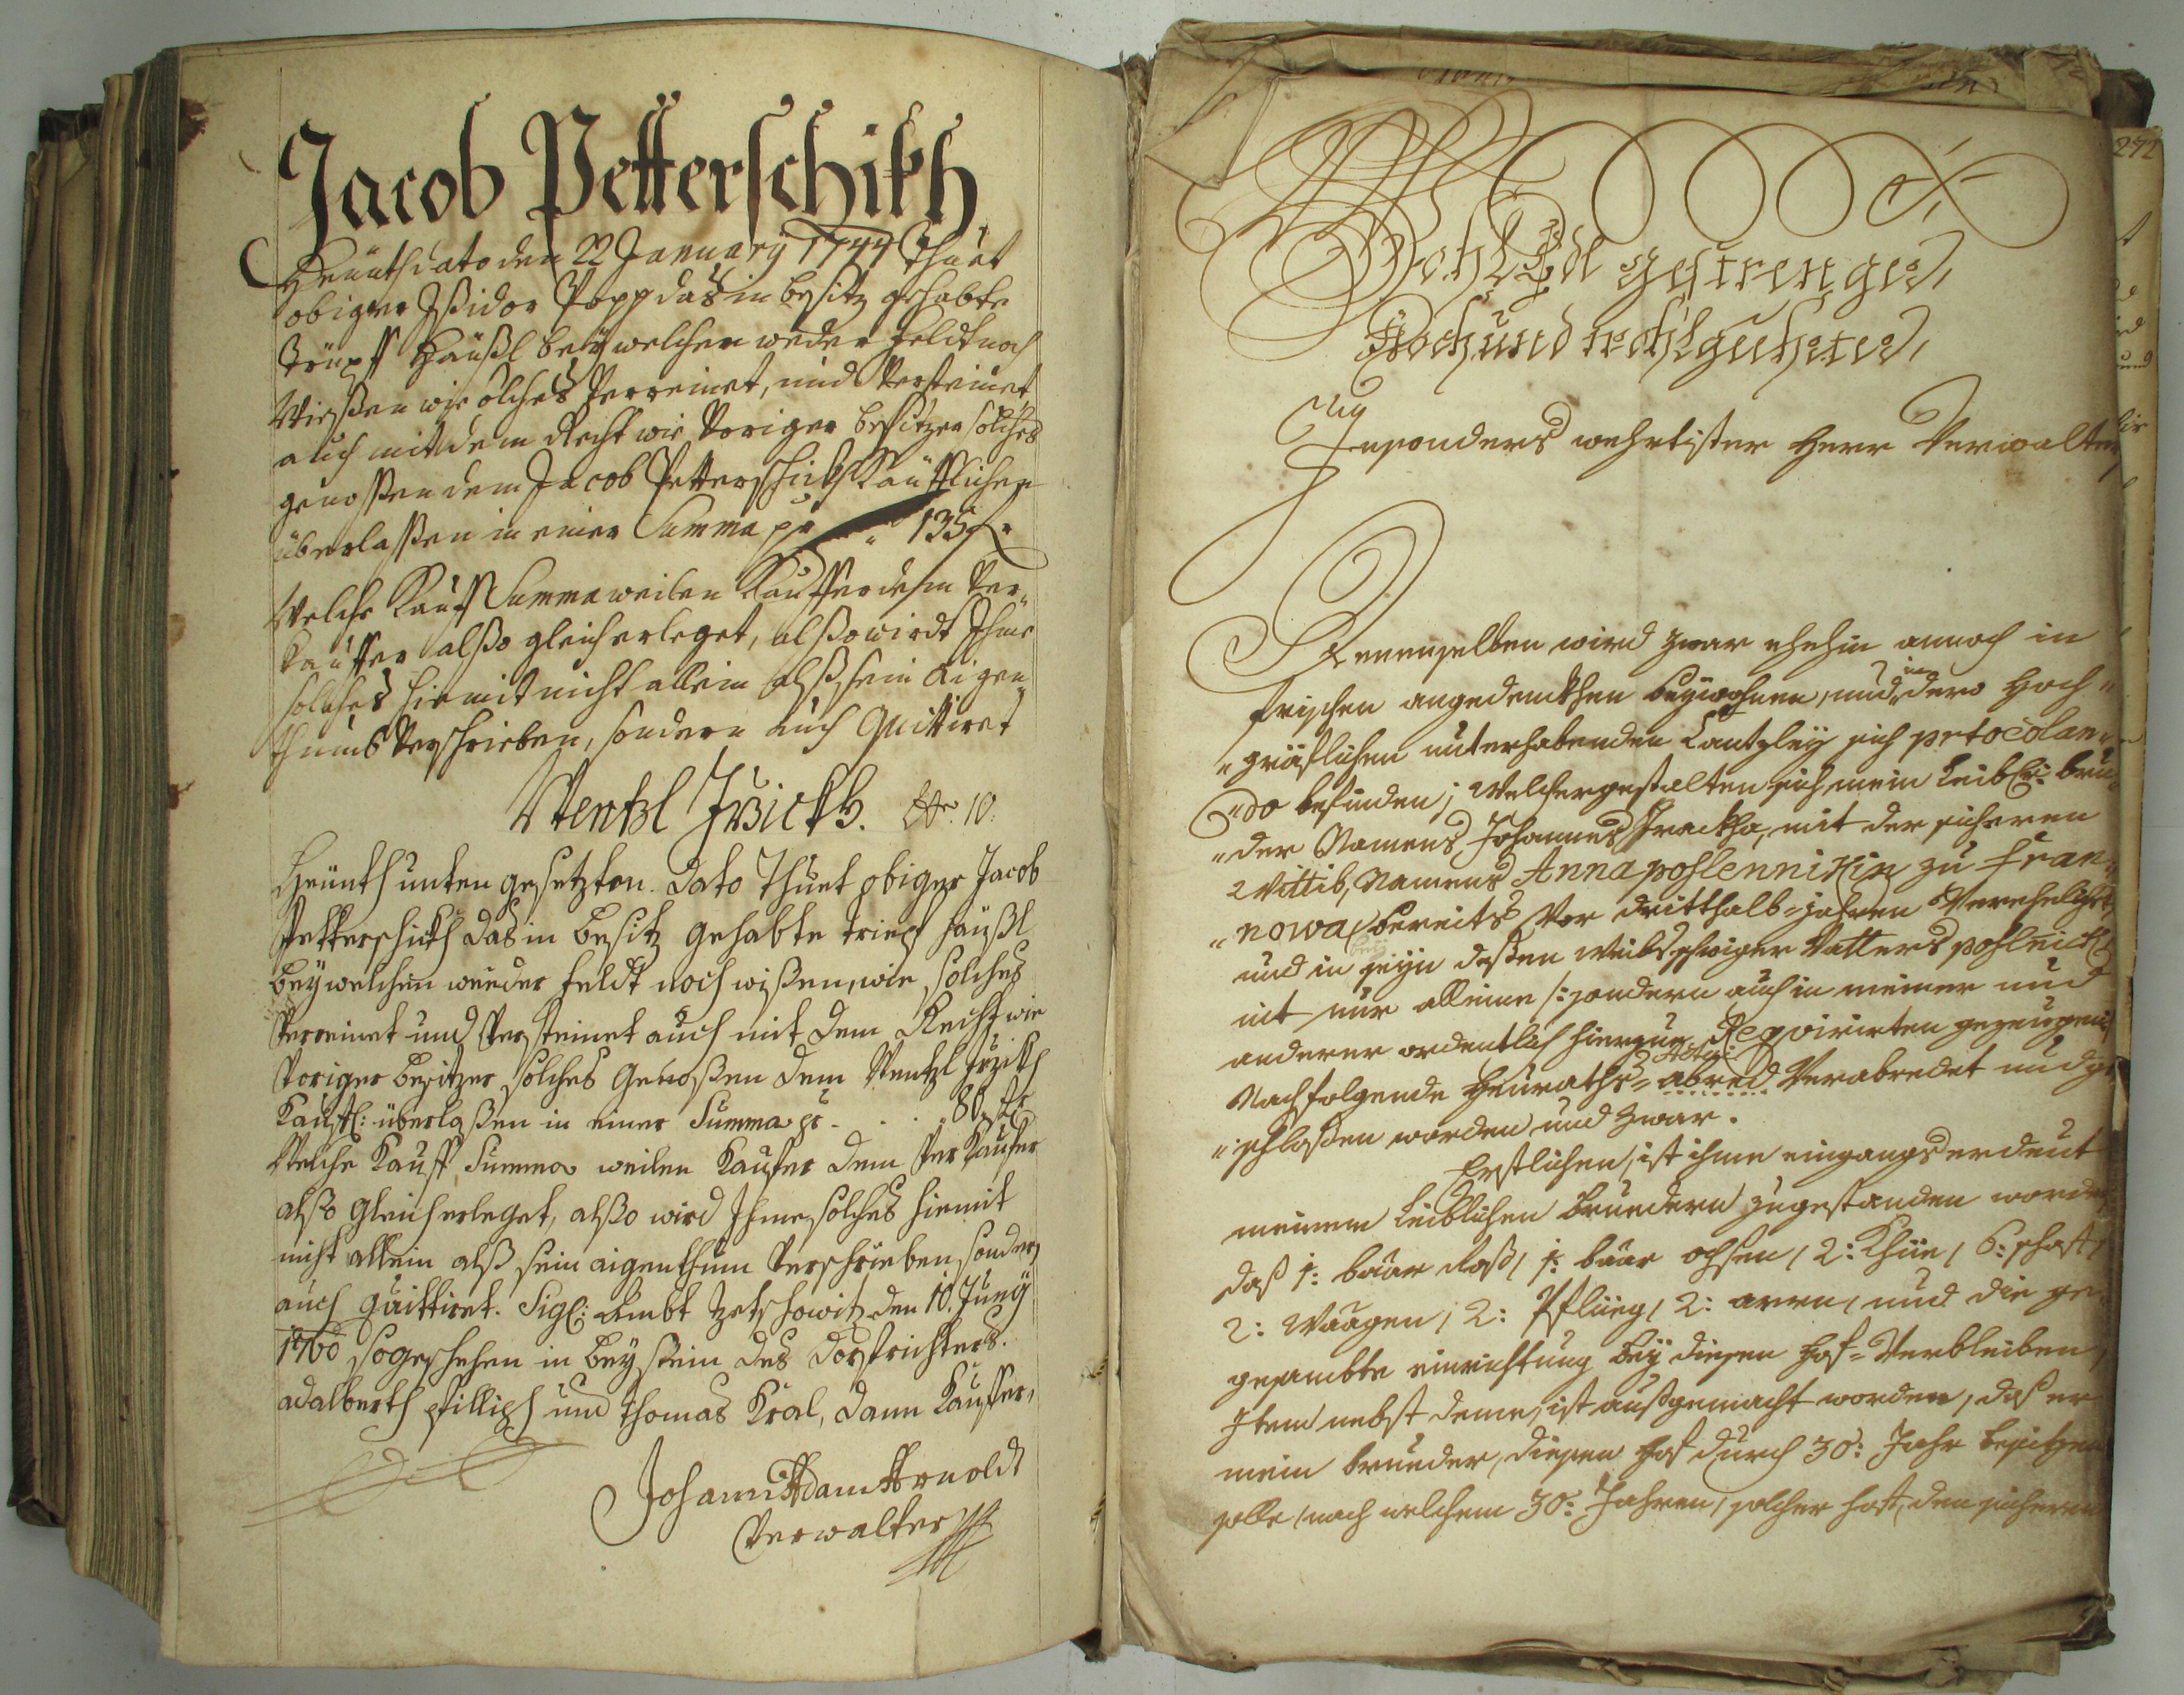 Jacob Petterschikh
Heünth dato den 22 January 1744 Thuet
obiger Ißidor Popp das in besitz gehabte
Trüpff Häußl beÿ welchen weder Feldt noch
Wießen wie solches Verreinet, und Versteinet
auch mit dem Recht wie Voriger besitzer solches
genoßen dem Jacob Petterschickh Kaüfflichen
überlaßen in einer Summa pr 135 f
Welche Kauff Summa weilen Kauffer dem Ver„
kauffer alßo gleich erleget, alßo wirdt Ihme
solches hiemit nicht allein alß sein Eigen„
thumb Verschrieben, sondern auch Quittiret
Wentzl Irzickh. No. 10.
Heünth unten gesetzten Dato Thuet obiger Jacob
Petterschickh das in besitz gehabte triepf häußl
beÿ welchen weeder feldt noch wißen, wie solches
Verreinet und Versteinet auch mit dem Recht wie
Voriger besitzer solches genoßen dem Wentzl Irzikh
Käuffl: überlaßen in einer Summa pr . . . 80 f
Welche Kauff Summa weilen Kaufer dem Verkaufer
alßo gleich erleget, alßo wird Ihme solches hiemit
nicht allein alß sein aigenthum Verschrieben sondern
auch quittiret. Sigl: Ambt Zetschowitz den 10. Juny
1760 so geschehen in beÿsein des Dorfrichters
adalberth phillipp und Thomas Kral, dann Kauffer,
Johann Adam Arnoldt
Verwalter
272
Wohl Edl gestrenger,
Hoch und wohlgeehrter,
Insonders wehrtister Herr Verwalter,
Denenselben wird zwar ohnehin annoch in
frischen angedenkhen beÿwohnen, und in dero Hoch„
„gräflichen unterhabenden Cantzleÿ sich protocolan„
„do befinden; Welchergestalten sich mein leibl: bru„
„der Namens Johannes Hrackha, mit der sicheren
Wittib, Namens Anna poslennikin zu Fran„
„nowa bereits Vor dritthalb=jahren Verehelichet,
und in seyn deßen Weibs schwiger Vatters poslnick
nit nur alleine /: sondern auch in meiner und
anderer ordentlich hierzue Requirirten gezeugen
Nachfolgende Heuraths=abred Verabredet und ge„
„schloßen worden und zwar.
Erstlichen, ist ihme eingangs erdeut
meinem leiblichen brüedern zugestanden worden,
daß 1: bäar Roß, 1: bäar ochsen, 2: Khüe, 6: schaff,
2: Wäagen, 2: Pflüeg, 2: arrn, und die ge„
gesambte einrichtung beÿ diesen Hof=Verbleiben,
Item nebst deme, ist außgemacht worden, daß er
mein bruder, diesen Hof durch 30: Jahr besitzen
solle, nach welchem 30: Jahren, solcher hoff, den sicheren